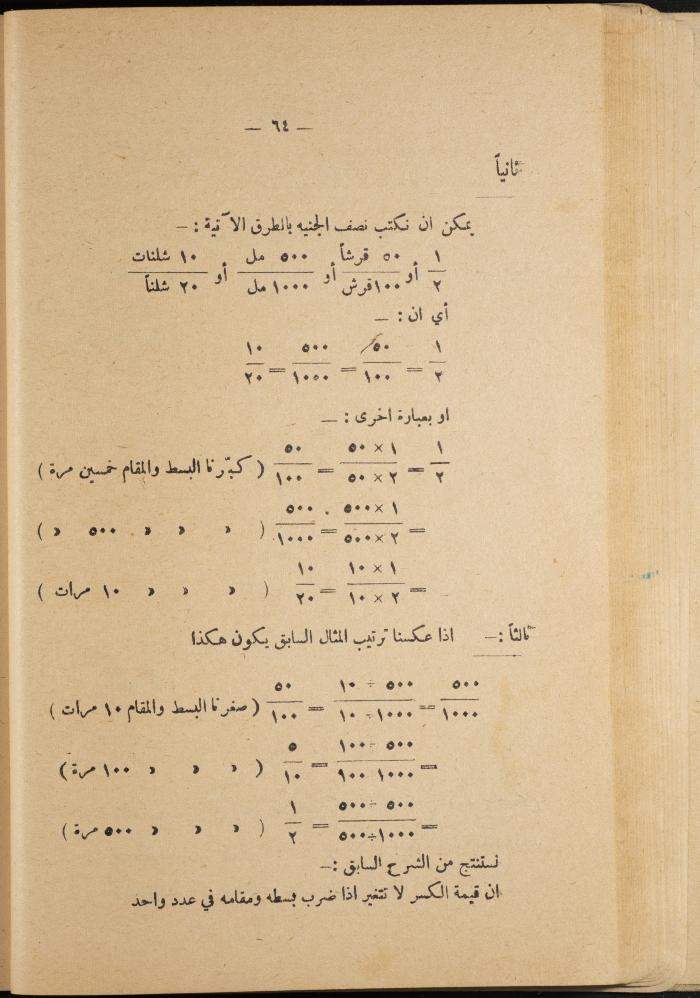 — ٦٤ —
ثانياً
يمكن ان نكتب نصف الجنيه بالطرق الآتية : —
١/٢ أو ٥٠ قرشاً/١٠٠ قرش أو ٥٠٠ مل/١٠٠٠ مل أو ١٠ شلنات/٢٠ شلناً
أي ان : —
١/٢ = ٥٠/١٠٠ = ٥٠٠/١٠٠٠ = ١٠/٢٠
او بعبارة اخرى : —
١/٢ = ١ × ٥٠/٢ × ٥٠ = ٥٠/١٠٠ ( كبّرنا البسط والمقام خمسين مرة )
= ١ × ٥٠٠/٢ × ٥٠٠ = ٥٠٠/١٠٠٠ ( » » » » ٥٠٠ » )
= ١ × ١٠/٢ × ١٠ = ١٠/٢٠ ( » » » » ١٠ مرات )
ثالثاً : — اذا عكسنا ترتيب المثال السابق يكون هكذا
٥٠٠/١٠٠٠ = ٥٠٠ ÷ ١٠/١٠٠٠ ÷ ١٠ = ٥٠/١٠٠ ( صغرنا البسط والمقام ١٠ مرات )
= ٥٠٠ ÷ ١٠٠/١٠٠٠ ١٠٠ = ٥/١٠ ( » » » ١٠٠ مرة )
= ٥٠٠ ÷ ٥٠٠/١٠٠٠ ÷ ٥٠٠ = ١/٢ ( » » » ٥٠٠ مرة )
نستنتج من الشرح السابق : —
ان قيمة الكسر لا تتغير اذا ضرب بسطه ومقامه في عدد واحد